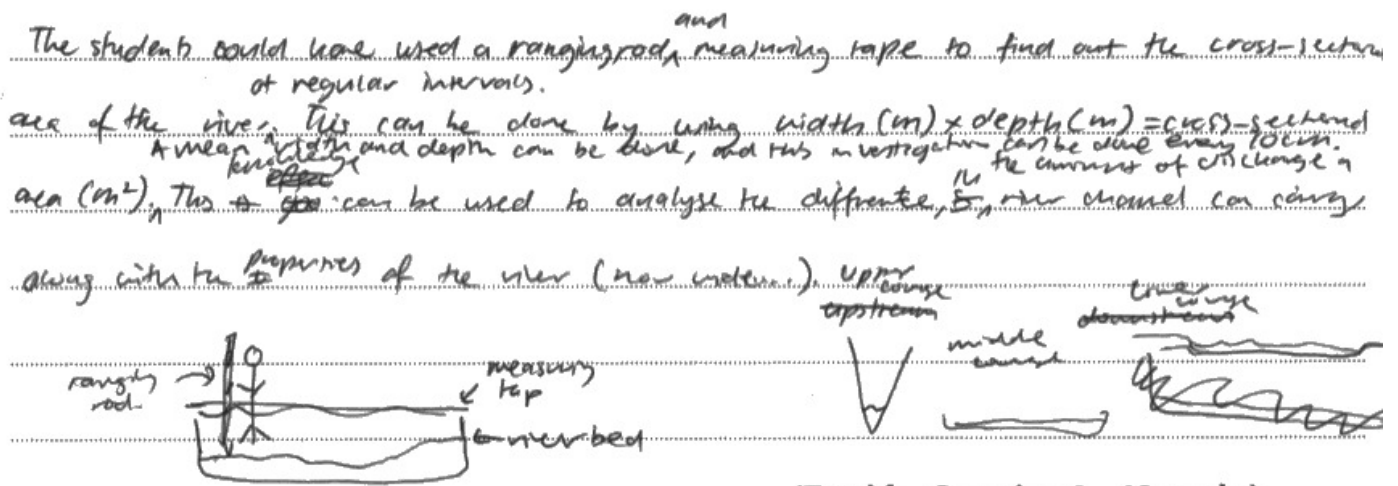 The students could have used a ranging rod and measuring tape to find out the cross-sectional
area of the river at regular intervals. This can be done by using width (m) x depth (m) = cross-sectional
area (m²). A mean width and depth can be done, and this investigation can be done every 10cm.
This knowledge can be used to analyse the diffrente, the amount of discharge a river channel can carry
along with the properties of the river (how wide...).
upper course
upstream
middle course
lower course
downstream
ranging rod
measuring tap
river bed